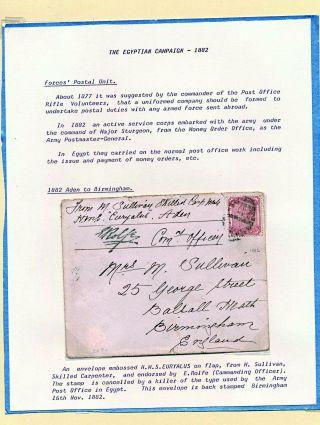 THE EGYPTIAN CAMPAIGN - 1882
Forces' Postal Unit.
About 1877 it was suggested by the commander of the Post Office
Rifle Volunteers, that a uniformed company should be formed to
undertake postal duties with any armed force sent abroad.
In 1882 an active service corps embarked with the army under
the command of Major Sturgeon, from the Money Order Office, as the
Army Postmaster-General.
In Egypt they carried on the normal post office work including
the issue and payment of money orders, etc.
1882 Aden to Birmingham.
From M. Sullivan Skilled Carp
H.M.S. Euryalus, Aden
ERolfe Comg Officer
Mrs M. Sullivan
25 George Street
Balsall Heath
Birmingham
England
An envelope embossed H.M.S.EURYALUS on flap, from M. Sullivan,
Skilled Carpenter, and endorsed by E.Rolfe (Commanding Officer).
The stamp is cancelled by a killer of the type used by the Army
Post Office in Egypt. This envelope is back stamped Birmingham
16th Nov. 1882.